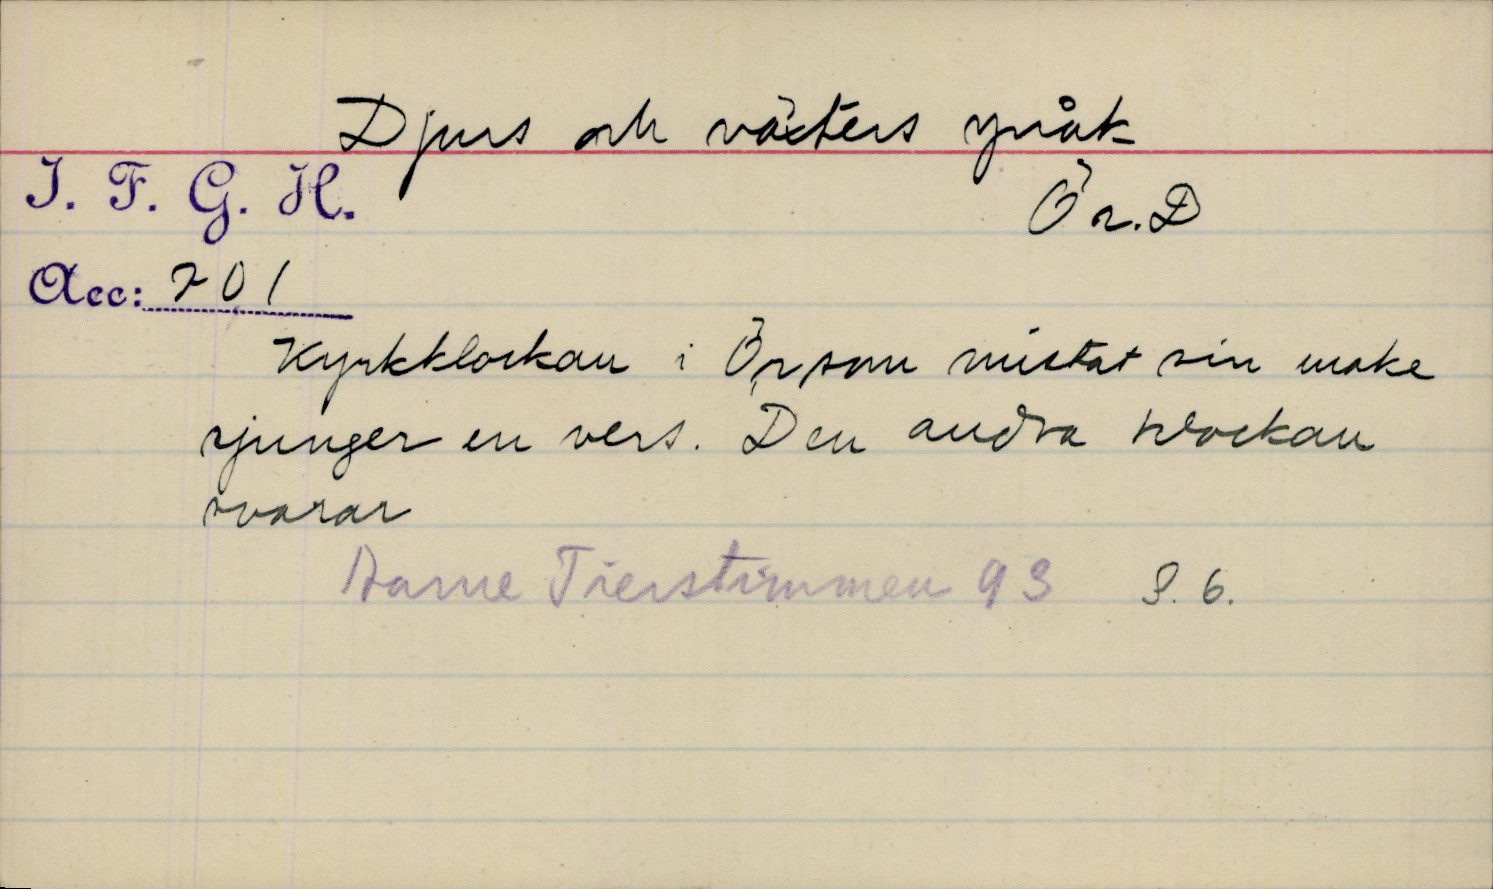 Djurs och växters språk
I. F. G. H.
Ör. D
Acc: 701
Kyrkklockan i Ör som mistat sin make
sjunger en vers. Den andra klockan
svarar
Aarne Tierstimmen 93 S. 6.